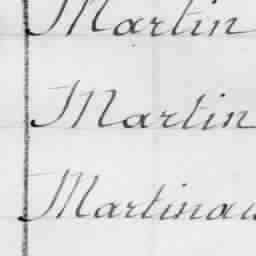 Martin
Martin
Martinau